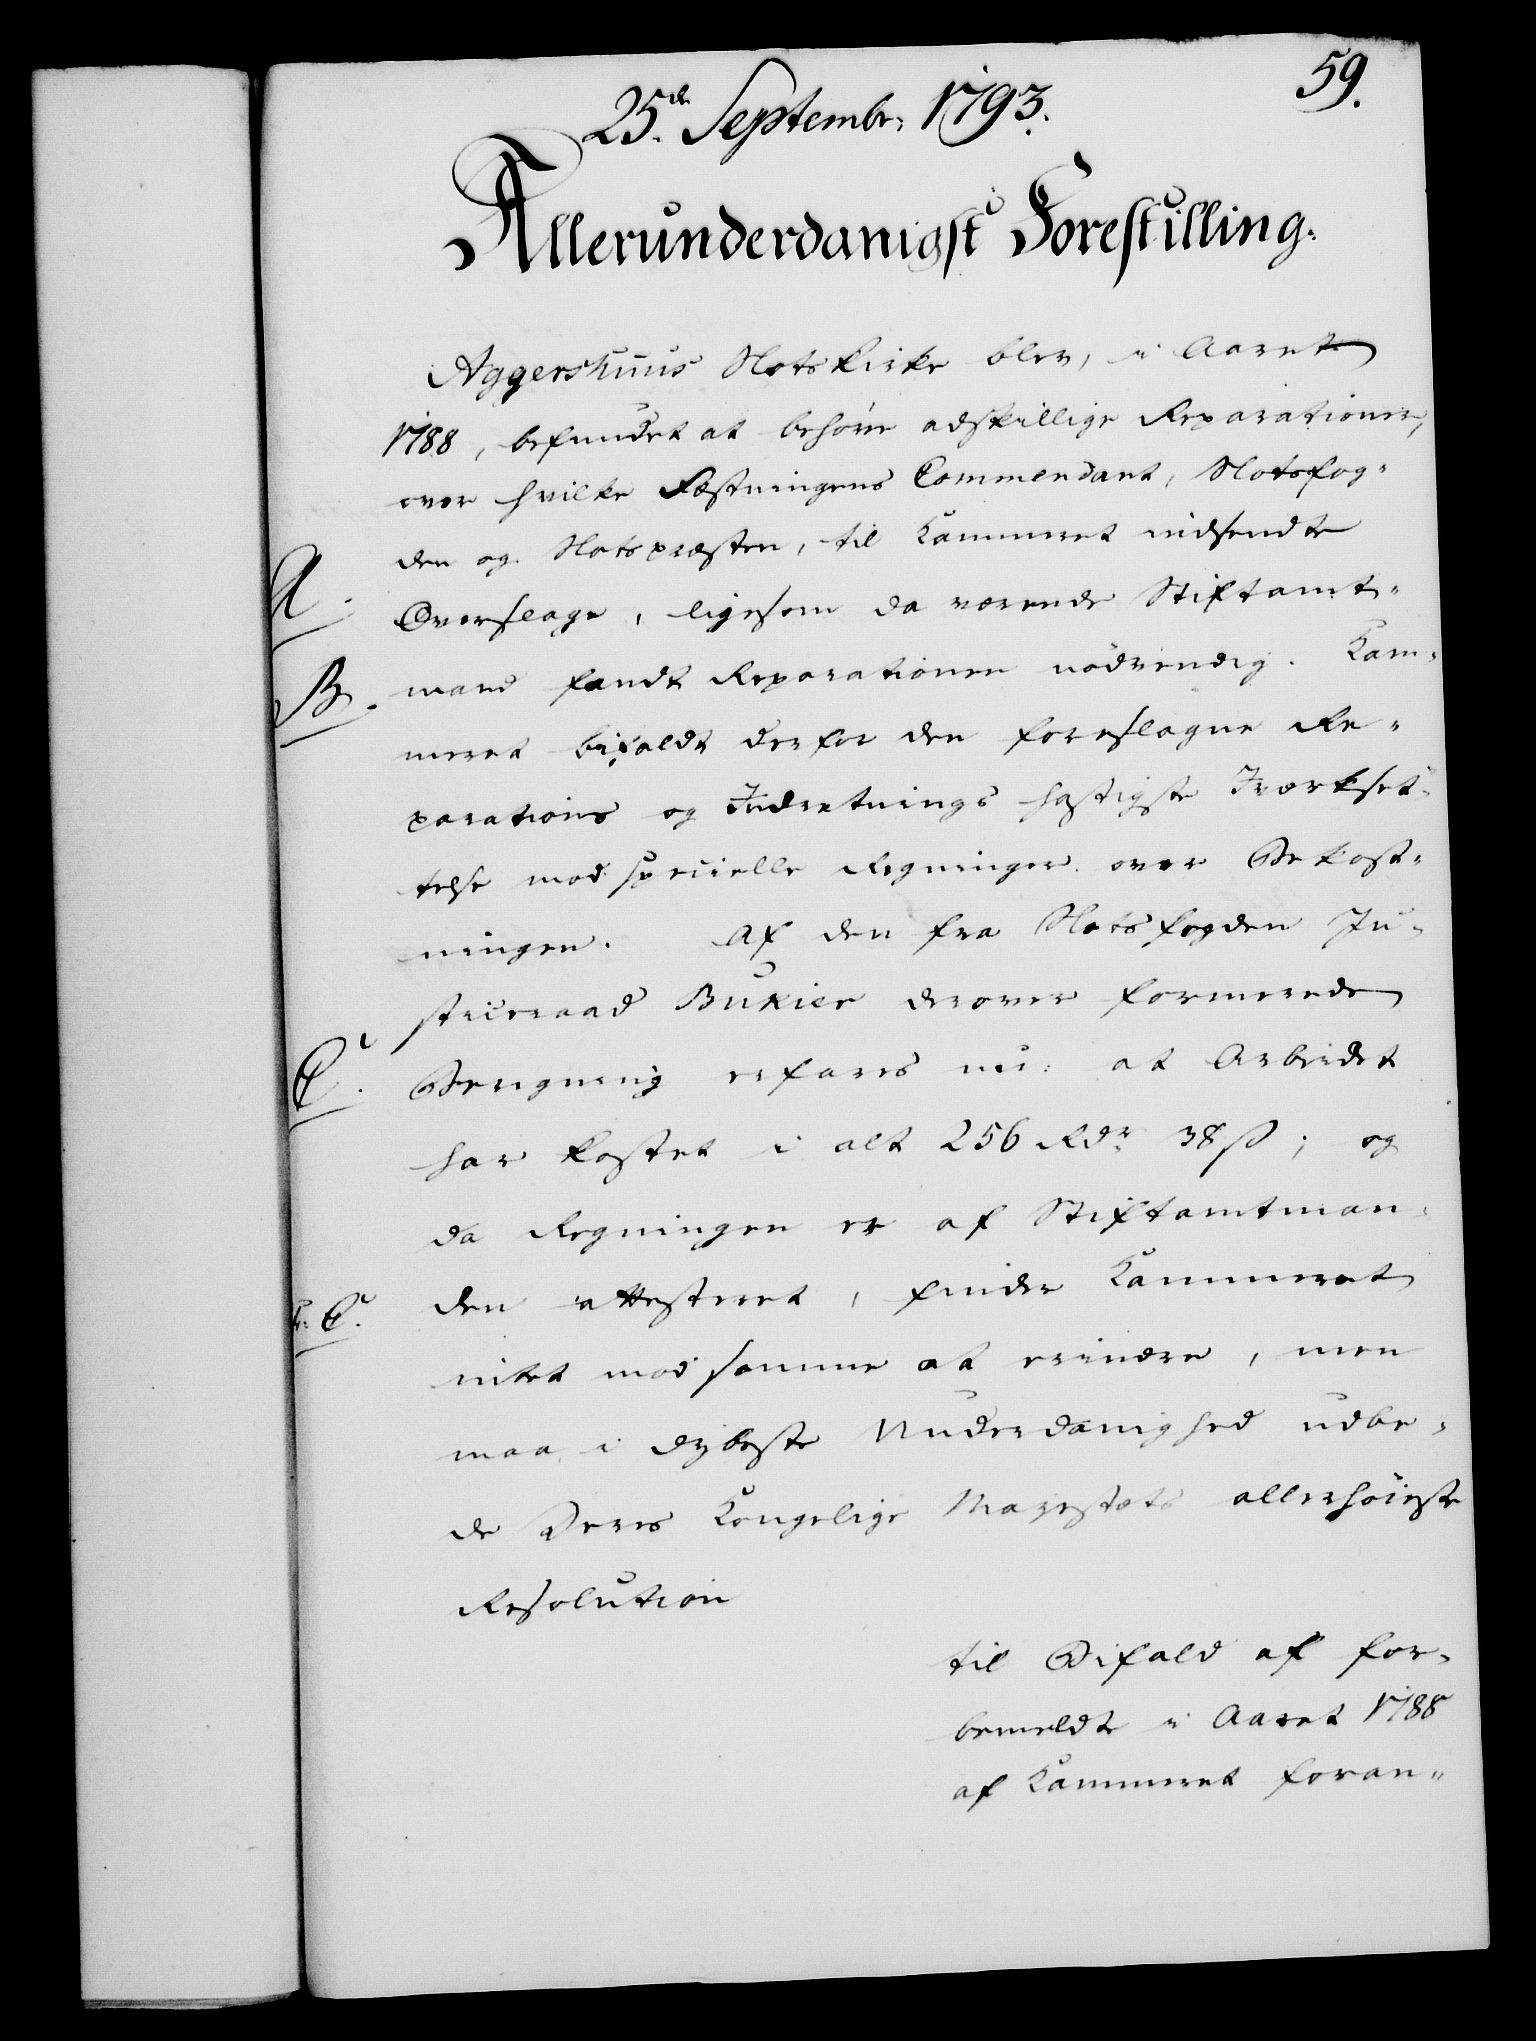 59.
25de Septembr. 1793.
Allerunderdanigst Forestilling.
Aggershuus Slotskirke blev, i Aaret
1788, befundet at behøve adskillige Reparationer,
over hvilke Fæstningens Commendant, Slotsfog-
den og Slotspræsten, til Kammeret indsendte
A.
Overslage, ligesom da værende Stiftamt-
B.
mand fandt Reparationen nødvendig. Kam-
meret bifaldt derfor den foreslagne Re-
parations og Indretnings hastigste Iværkset-
telse mod specielle Regninger over Bekost-
ningen. Af den fra Slotsfogden Ju-
sticeraad Bukier derover formerede
C.
Beregning erfares nu: at Arbeidet
har kostet i alt 256 Rdr 38 ß; og
da Regningen er af Stiftamtman-
C.
den attesteret, finder Kammeret
intet mod samme at erindre, men
maa i dybeste Underdanighed udbe-
de Deres Kongelige Majestæts allerhøieste
Resolution
til Bifald af for-
bemeldte i Aaret 1788
af Kammeret foran-